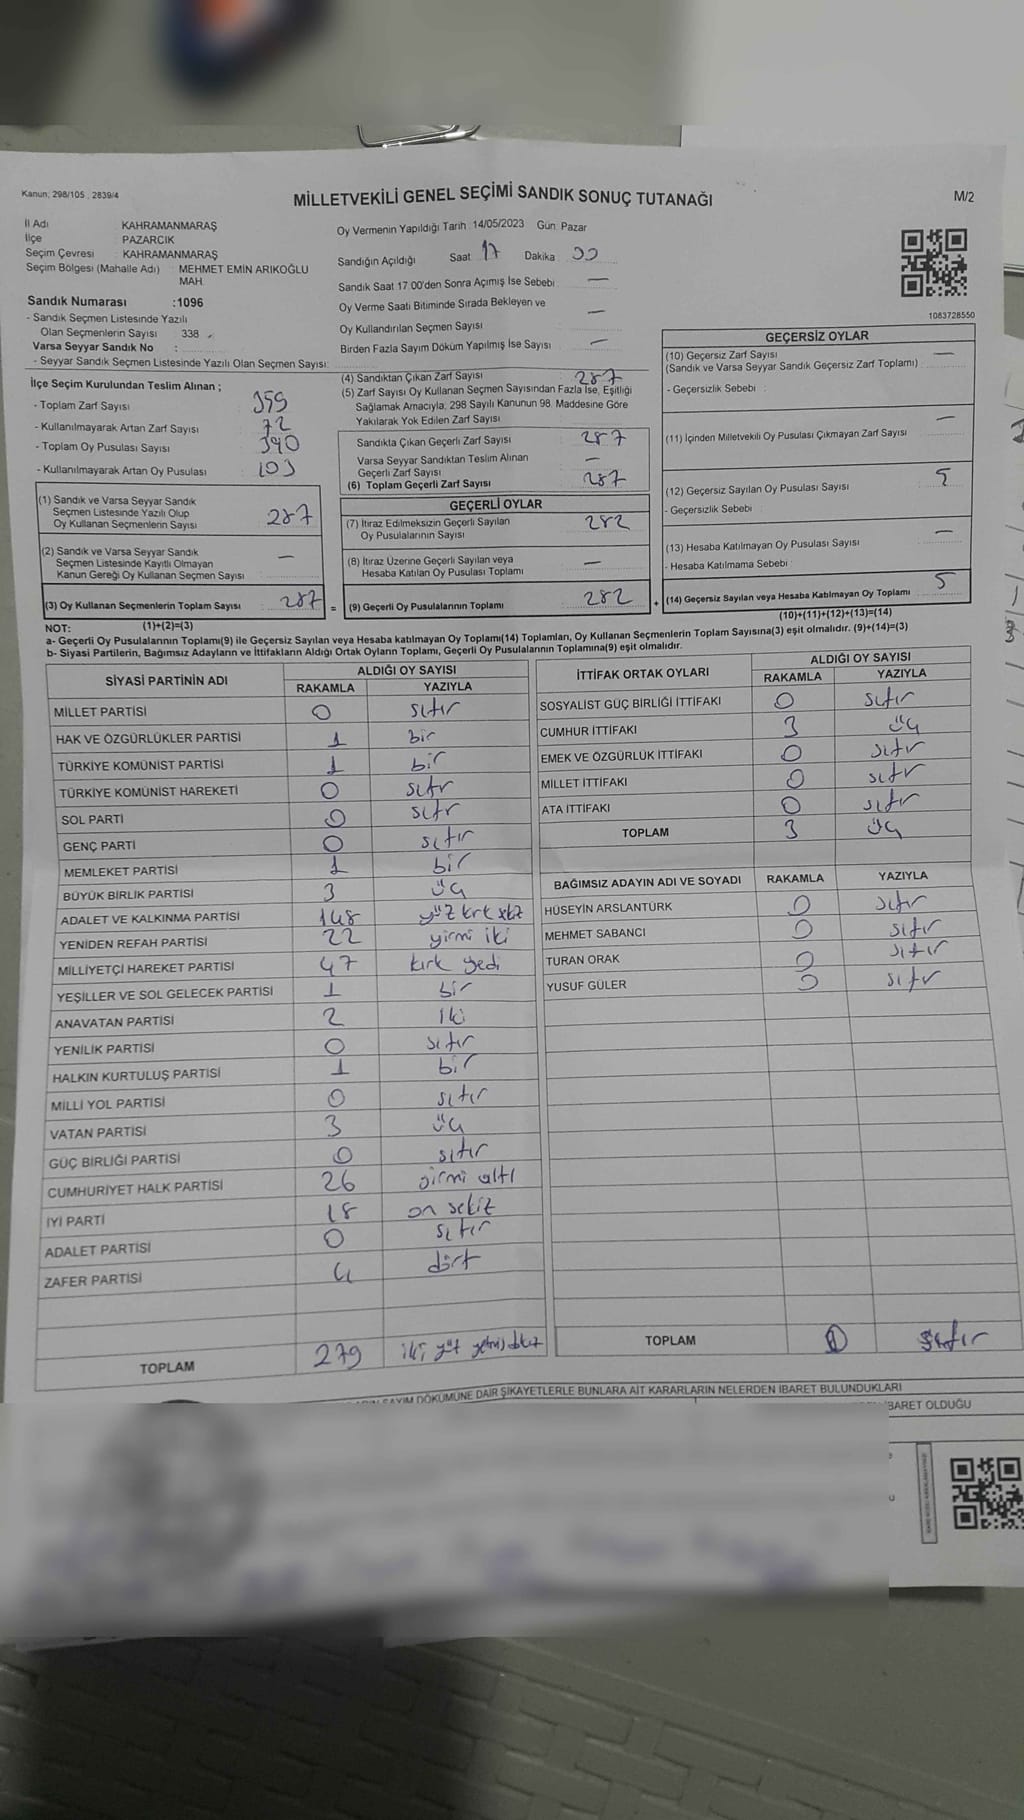 Kanun; 298/105 , 2839/4
MİLLETVEKİLİ GENEL SEÇİMİ SANDIK SONUÇ TUTANAĞI
M/2
İl Adı KAHRAMANMARAŞ
İlçe PAZARCIK
Seçim Çevresi : KAHRAMANMARAŞ
Seçim Bölgesi (Mahalle Adı) : MEHMET EMİN ARIKOĞLU
MAH.
Sandık Numarası :1096
- Sandık Seçmen Listesinde Yazılı
Olan Seçmenlerin Sayısı : 338
Varsa Seyyar Sandık No :
- Seyyar Sandık Seçmen Listesinde Yazılı Olan Seçmen Sayısı:
Oy Vermenin Yapıldığı Tarih : 14/05/2023 Gün: Pazar
Sandığın Açıldığı Saat 17 Dakika 00
Sandık Saat 17.00'den Sonra Açımış İse Sebebi —
Oy Verme Saati Bitiminde Sırada Bekleyen ve
Oy Kullandırılan Seçmen Sayısı —
Birden Fazla Sayım Döküm Yapılmış İse Sayısı —
1083728550
İlçe Seçim Kurulundan Teslim Alınan ;
- Toplam Zarf Sayısı 359
- Kullanılmayarak Artan Zarf Sayısı 72
- Toplam Oy Pusulası Sayısı 390
- Kullanılmayarak Artan Oy Pusulası 103
(1) Sandık ve Varsa Seyyar Sandık
Seçmen Listesinde Yazılı Olup
Oy Kullanan Seçmenlerin Sayısı 287
(2) Sandık ve Varsa Seyyar Sandık
Seçmen Listesinde Kayıtlı Olmayan
Kanun Gereği Oy Kullanan Seçmen Sayısı —
(3) Oy Kullanan Seçmenlerin Toplam Sayısı 287 =
(1)+(2)=(3)
(4) Sandıktan Çıkan Zarf Sayısı 287
(5) Zarf Sayısı Oy Kullanan Seçmen Sayısından Fazla İse, Eşitliği
Sağlamak Amacıyla; 298 Sayılı Kanunun 98. Maddesine Göre
Yakılarak Yok Edilen Zarf Sayısı
Sandıkta Çıkan Geçerli Zarf Sayısı 287
Varsa Seyyar Sandıktan Teslim Alınan
Geçerli Zarf Sayısı —
(6) Toplam Geçerli Zarf Sayısı 287
GEÇERLİ OYLAR
(7) İtiraz Edilmeksizin Geçerli Sayılan
Oy Pusulalarının Sayısı 282
(8) İtiraz Üzerine Geçerli Sayılan veya
Hesaba Katılan Oy Pusulası Toplamı —
(9) Geçerli Oy Pusulalarının Toplamı 282 +
GEÇERSİZ OYLAR
(10) Geçersiz Zarf Sayısı —
(Sandık ve Varsa Seyyar Sandık Geçersiz Zarf Toplamı)
- Geçersizlik Sebebi :
(11) İçinden Milletvekili Oy Pusulası Çıkmayan Zarf Sayısı —
(12) Geçersiz Sayılan Oy Pusulası Sayısı 5
- Geçersizlik Sebebi :
(13) Hesaba Katılmayan Oy Pusulası Sayısı —
- Hesaba Katılmama Sebebi
(14) Geçersiz Sayılan veya Hesaba Katılmayan Oy Toplamı 5
(10)+(11)+(12)+(13)=(14)
NOT:
a- Geçerli Oy Pusulalarının Toplamı(9) ile Geçersiz Sayılan veya Hesaba katılmayan Oy Toplamı(14) Toplamları, Oy Kullanan Seçmenlerin Toplam Sayısına(3) eşit olmalıdır. (9)+(14)=(3)
b- Siyasi Partilerin, Bağımsız Adayların ve İttifakların Aldığı Ortak Oyların Toplamı, Geçerli Oy Pusulalarının Toplamına(9) eşit olmalıdır.
SİYASİ PARTİNİN ADI ALDIĞI OY SAYISI
RAKAMLA YAZIYLA
MİLLET PARTİSİ 0 sıfır
HAK VE ÖZGÜRLÜKLER PARTİSİ 1 bir
TÜRKİYE KOMÜNİST PARTİSİ 1 bir
TÜRKİYE KOMÜNİST HAREKETİ 0 sıfır
SOL PARTİ 0 sıfır
GENÇ PARTİ 0 sıfır
MEMLEKET PARTİSİ 1 bir
BÜYÜK BİRLİK PARTİSİ 3 üç
ADALET VE KALKINMA PARTİSİ 148 yüz kırk
YENİDEN REFAH PARTİSİ 22 yirmi iki
MİLLİYETÇİ HAREKET PARTİSİ 47 kırk yedi
YEŞİLLER VE SOL GELECEK PARTİSİ 1 bir
ANAVATAN PARTİSİ 2 iki
YENİLİK PARTİSİ 0 sıfır
HALKIN KURTULUŞ PARTİSİ 1 bir
MİLLİ YOL PARTİSİ 0 sıfır
VATAN PARTİSİ 3 üç
GÜÇ BİRLİĞİ PARTİSİ 0 sıfır
CUMHURİYET HALK PARTİSİ 26 yirmi altı
İYİ PARTİ 18 on sekiz
ADALET PARTİSİ 0 sıfır
ZAFER PARTİSİ 4 dört
TOPLAM 279 iki yüz
İTTİFAK ORTAK OYLARI ALDIĞI OY SAYISI
RAKAMLA YAZIYLA
SOSYALİST GÜÇ BİRLİĞİ İTTİFAKI 0 sıfır
CUMHUR İTTİFAKI 3 üç
EMEK VE ÖZGÜRLÜK İTTİFAKI 0 sıfır
MİLLET İTTİFAKI 0 sıfır
ATA İTTİFAKI 0 sıfır
TOPLAM 3 üç
BAĞIMSIZ ADAYIN ADI VE SOYADI RAKAMLA YAZIYLA
HÜSEYİN ARSLANTÜRK 0 sıfır
MEHMET SABANCI 0 sıfır
TURAN ORAK 0 sıfır
YUSUF GÜLER 0 sıfır
TOPLAM 0 sıfır
SAYIM DÖKÜMÜNE DAİR ŞİKAYETLERLE BUNLARA AİT KARARLARIN NELERDEN İBARET BULUNDUKLARI
İBARET OLDUĞU